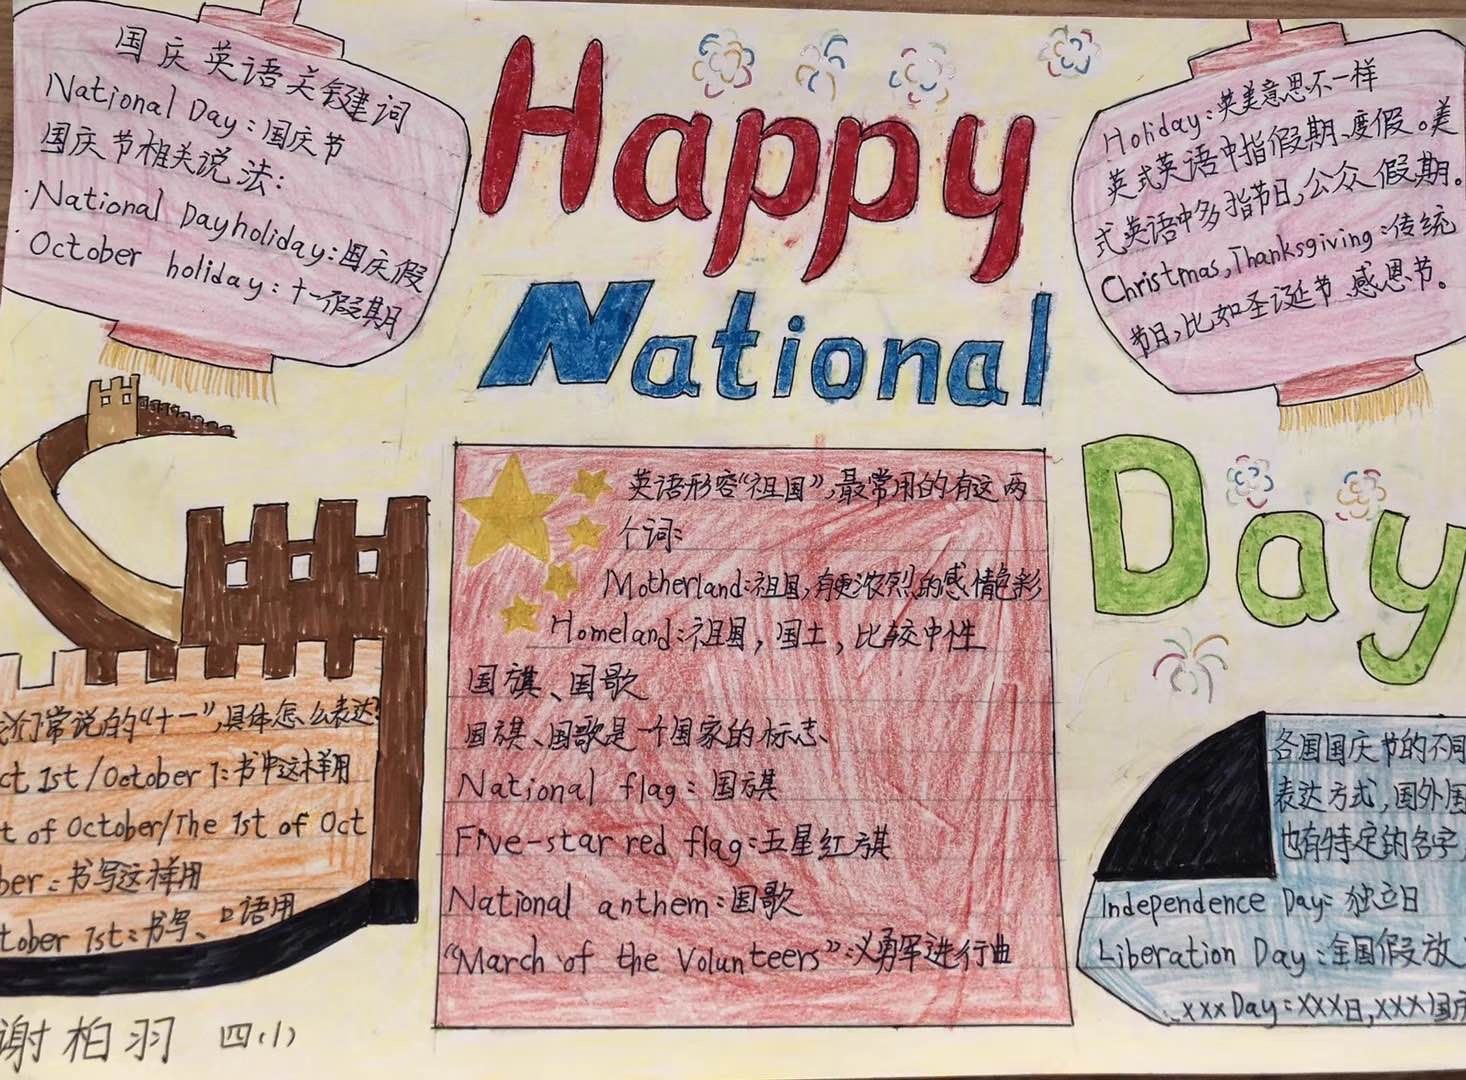 国庆英语关键词
National Day:国庆节
国庆节相关说法:
National Dayholiday:国庆假
October holiday:十一假期
Happy
National
Day
Holiday:英美意思不一样
英式英语中指假期、度假。美
式英语中多指节日,公众假期。
Christmas,Thanksgiving:传统
节日,比如圣诞节、感恩节。
英语形容“祖国”,最常用的有这两
个词:
Motherland:祖国,有更浓烈的感情色彩
Homeland:祖国,国土,比较中性
国旗、国歌
国旗、国歌是一个国家的标志、
National flag:国旗
Five-star red flag:五星红旗
National anthem:国歌
“March of the Volunteers”:义勇军进行曲
们常说的“十一”,具体怎么表达?
ct 1st/October 1:书中这样用
t of October/The 1st of Oct
ber:书写这样用
tober 1st:书写、口语用
各国国庆节的不同
表达方式,国外国
也有特定的名字,
Independence Day:独立日
Liberation Day:全国假放
xxxDay:XXX日,XXX国庆
谢柏羽 四(1)